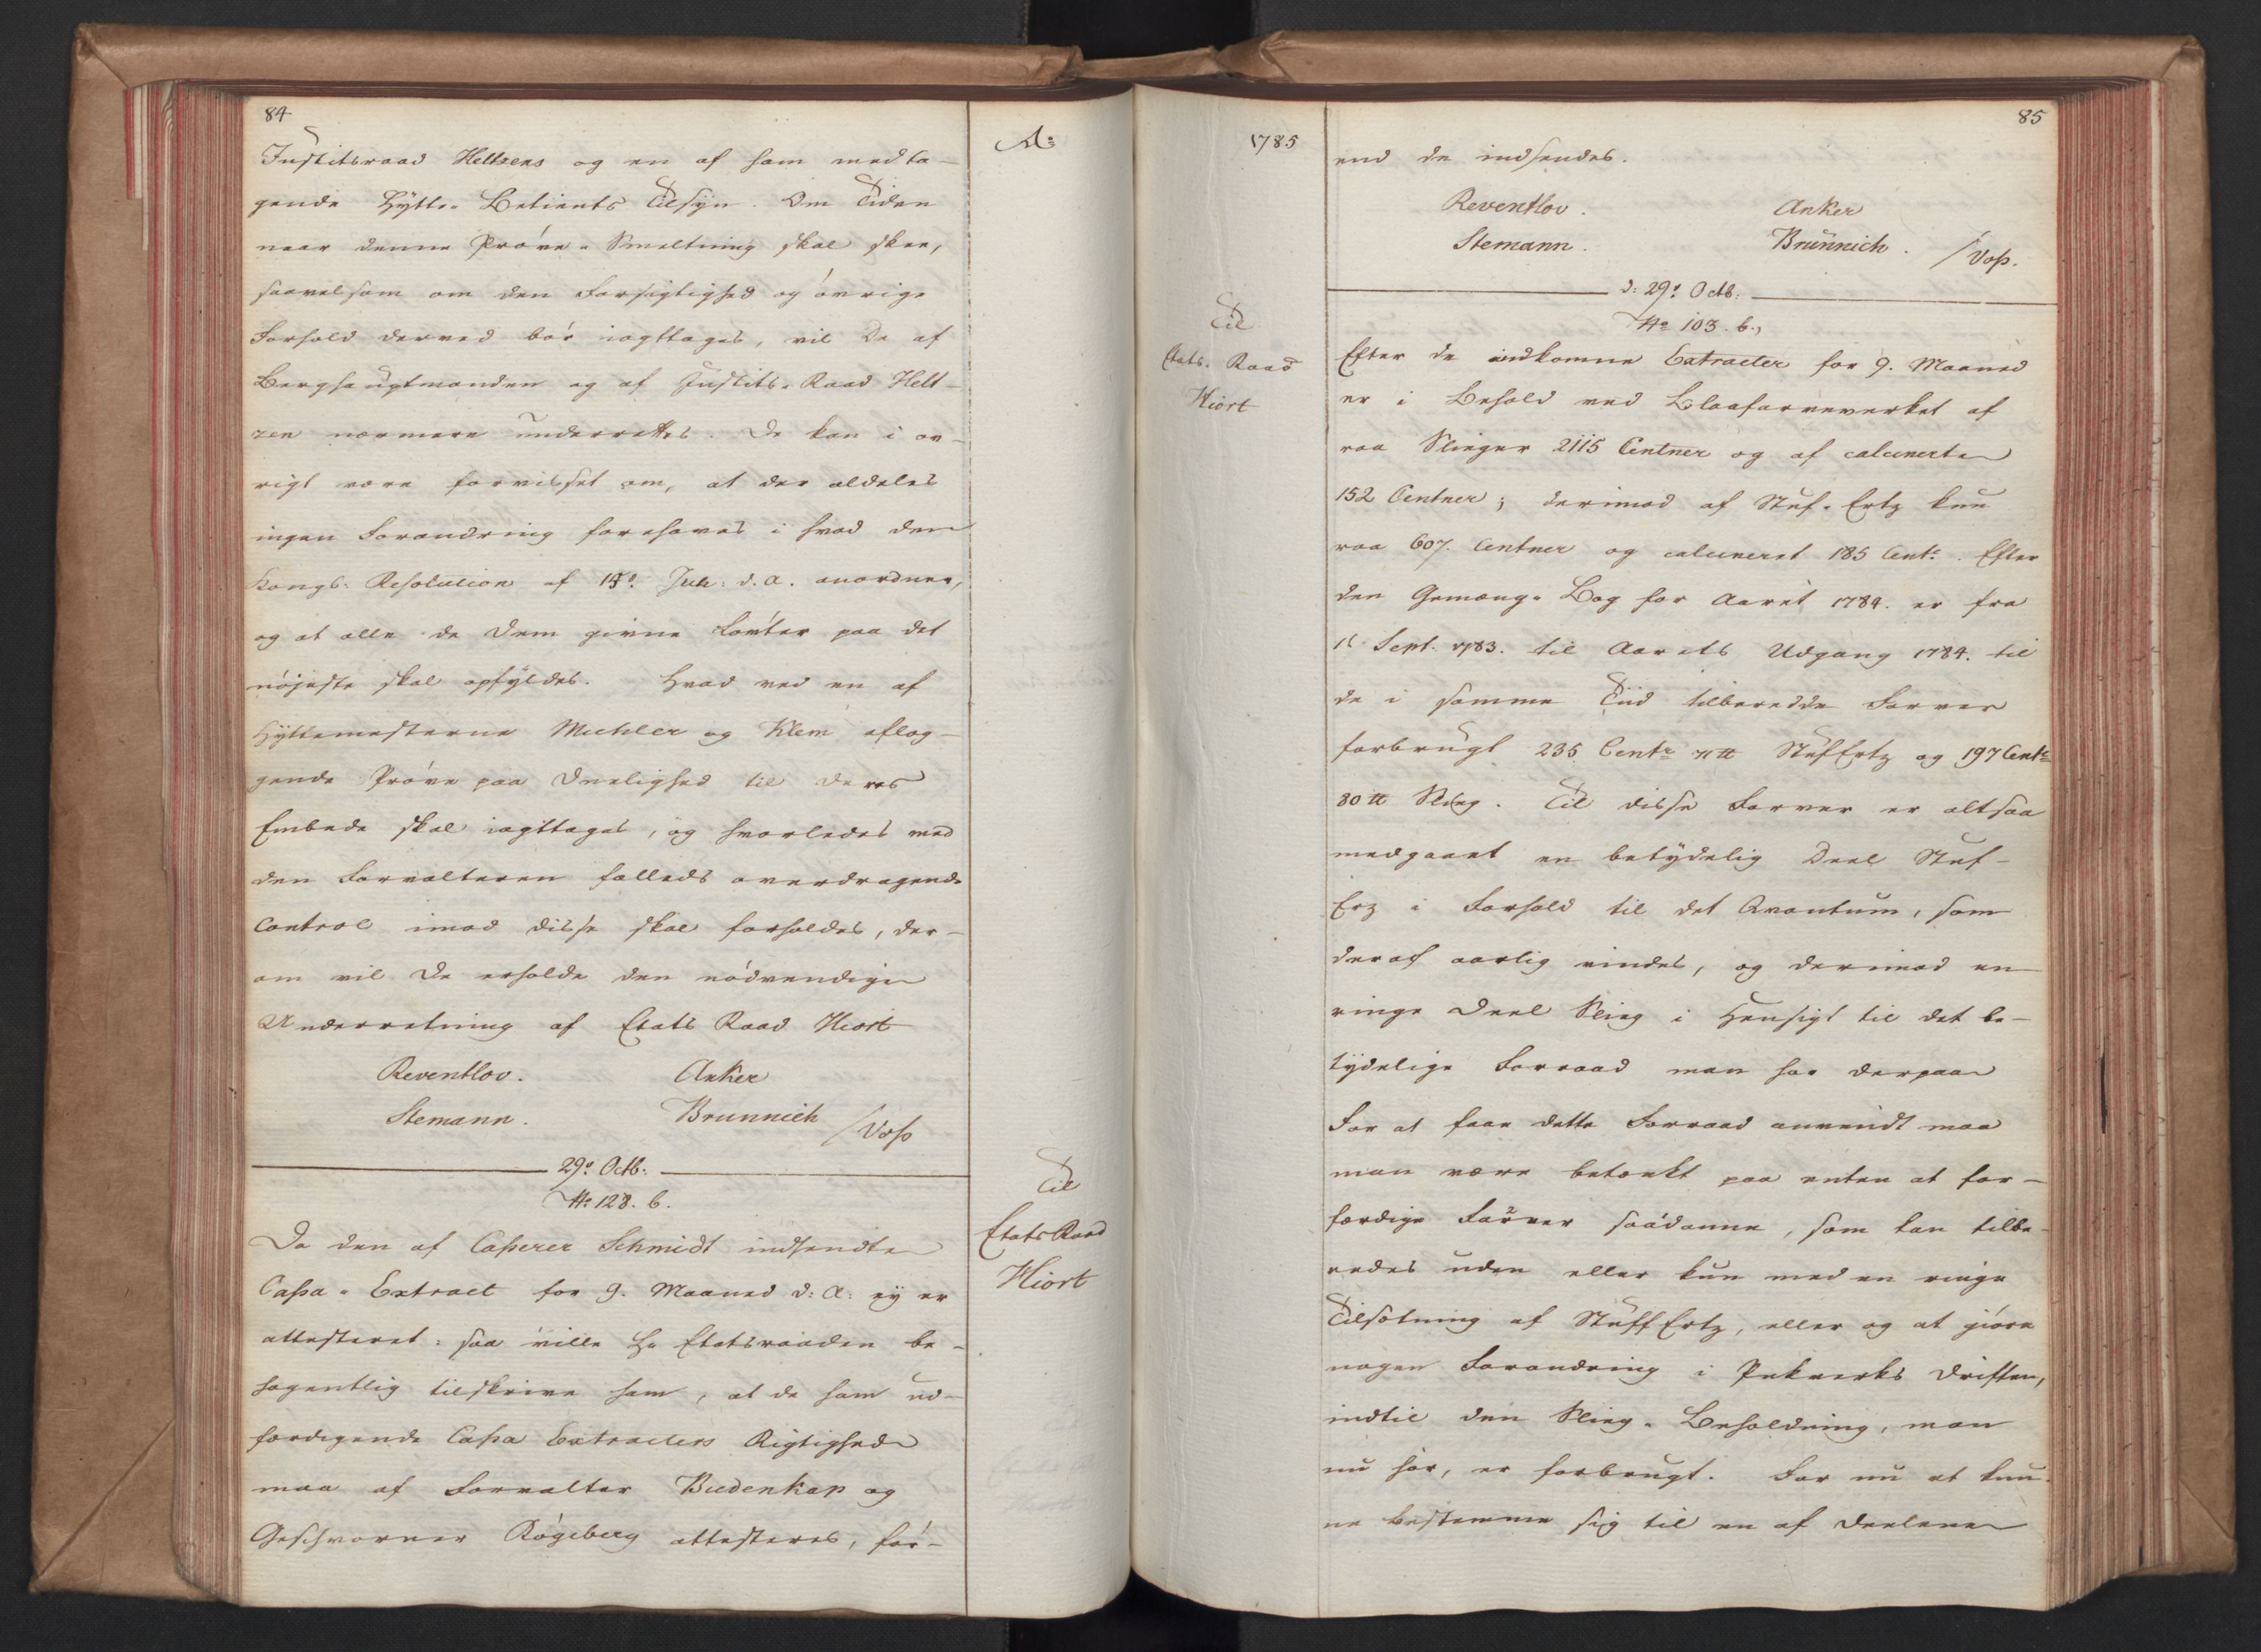 84
Justitsraad Heltzens og en af ham medta-
gende Hytte-Betients Tilsyn. Om Tiden
naar denne Prøve-Smeltning skal skee,
saavelsom om den Forsigtighed og øvrige
Forhold derved bør iagttages, vil De af
Berghauptmanden og af Justits-Raad Helt-
zen nærmere underrettes. De kan i øv-
rigt være forvisset om, at der aldeles
ingen Forandring forehaves i hvad den
Kongl: Resolution af 15de Jun: d. A. anordner,
og at alle de Dem givne Løfter paa det
nøjeste skal opfyldes. Hvad ved en af
Hyttemesterne Muhler og Klem aflæg-
gende Prøve paa Duelighed til deres
Embede skal iagttages, og hvorledes med
den Forvalteren fælleds overdragende
Control imod disse skal forholdes, der-
om vil De erholde den nødvendige
Underretning af Etats Raad Hiort
Reventlov. Anker
Stemann. Brunnich /Voss
29de Octb:
No 128. b.
Til
Etats Raad
Hiort
Da den af Casserer Schmidt indsendte
Cassa-Extract for 9. Maaned d: A: ey er
attesteret: saa ville Hr Etatsraaden be-
hagentlig tilskrive ham, at de ham ud-
færdigende Cassa Extracters Rigtighed
maa af Forvalter Budenhap og
Geschworner Røgeberg attesteres, før-
Ao
1785
85
end de indsendes.
Reventlov. Anker
Stemann. Brünnich. /Voss.
d: 29de Octb:
No 103. b.
Til
Etats-Raad
Hiort
Efter de indkomne Extracter for 9. Maaned
er i Behold ved Blaafarveverket af
raa Slieger 2115 Centner og af calcinerte
152 Centner; derimod af Stuf-Ertz kun
raa 607. Centner og calcineret 185 Centr. Efter
den Gemæng-Bog for Aaret 1784. er fra
Sept. 1783. til Aarets Udgang 1784. til
de i samme Tiid tilberedde Farver
forbrugt 235 Centr 71 ℔ StufErtz og 197 Centr
80 ℔ Slieg. Til disse Farver er altsaa
medgaaet en betydelig Deel Stuf-
Erz i Forhold til det Qvantum, som
deraf aarlig vindes, og derimod en
ringe Deel Slieg i Hensigt til det be-
tydelige Forraad man har derpaa
For at faae dette Forraad anvendt maa
man være betænkt paa enten at for-
færdige Farver saadanne, som kan tilbe-
redes uden eller kun med en ringe
Tilsætning af Stuff Ertz, eller og at giøre
nogen Forandring i Pukverks Driften,
indtil den Slieg-Beholdning, man
nu har, er forbrugt. For nu at kun-
ne bestemme sig til en af Deelene